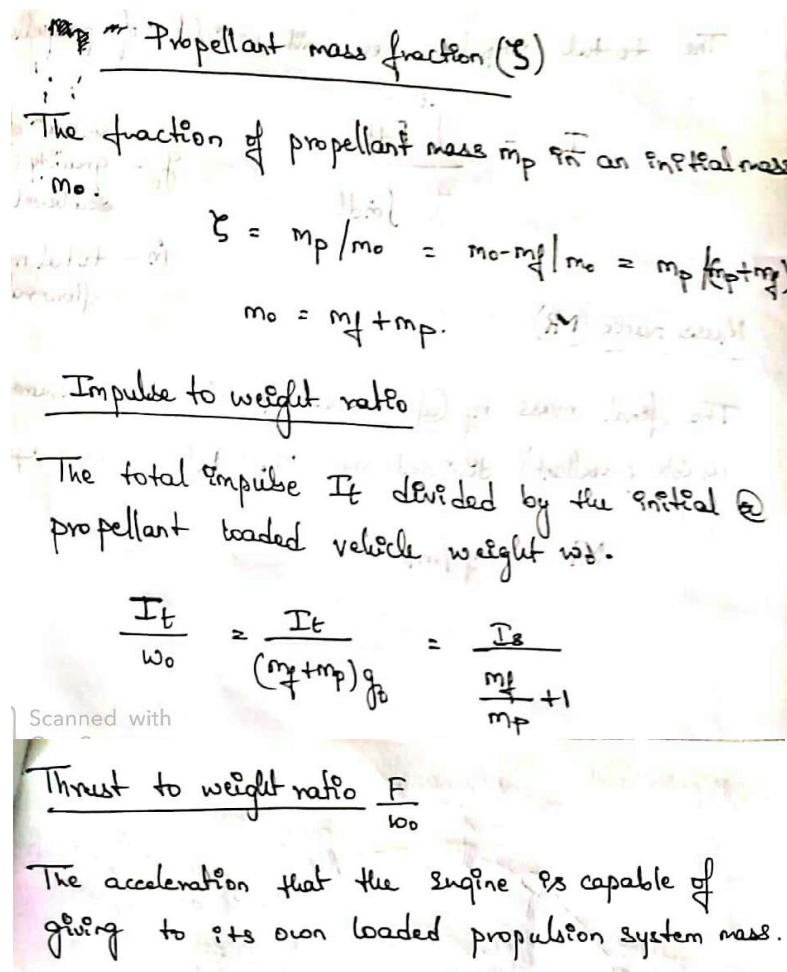 Propellant mass fraction (ζ)
The fraction of propellant mass mp in an initial mass
m0.
ζ = mp/m0 = m0-mf/m0 = mp/(mp+mf)
m0 = mf+mp.
Impulse to weight ratio
The total impulse It divided by the initial @
propellant loaded vehicle weight w0.
It/w0 = It/(mf+mp)g0 = Is/(mf/mp +1)
Scanned with
Thrust to weight ratio F/w0
The acceleration that the engine is capable of
giving to its own loaded propulsion system mass.